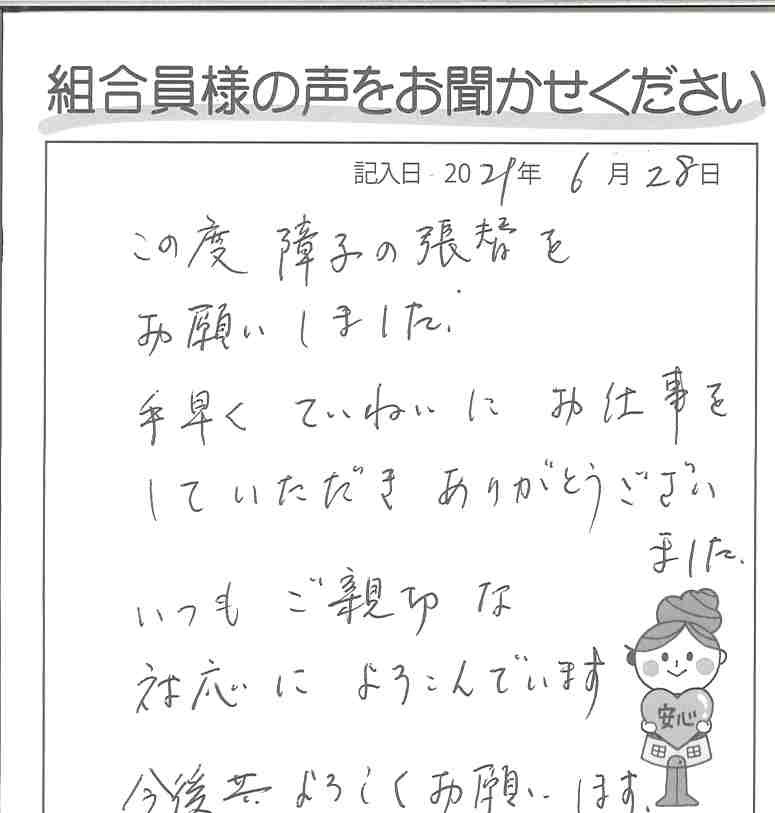 組合員様の声をお聞かせください
記入日 2021年 6月28日
この度 障子の張替を
お願いしました.
手早く ていねいに お仕事を
していただき ありがとうござい
ました.
いつも ご親切な
対応に よろこんでいます
安心
今後共 よろしくお願いします.